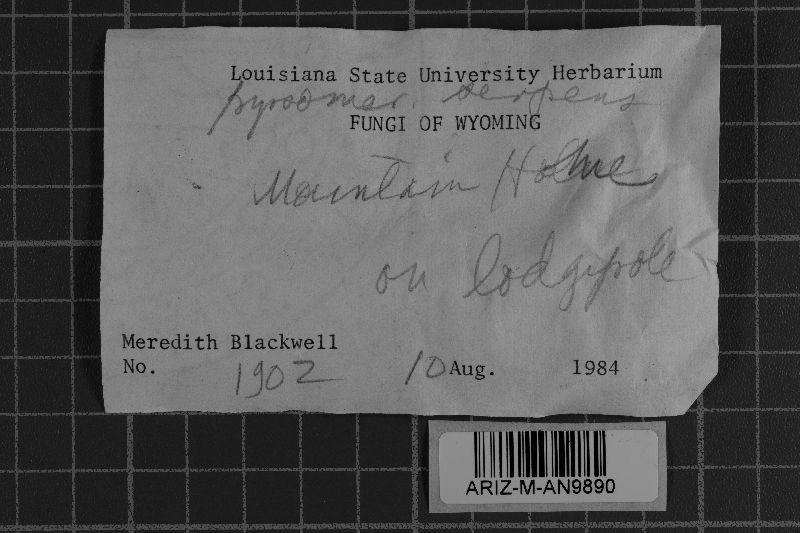 Louisiana State University Herbarium
pyroomer. serpens
FUNGI OF WYOMING
Mountain Home
on lodgepole
Meredith Blackwell
No. 1902 10 Aug. 1984
ARIZ-M-AN9890